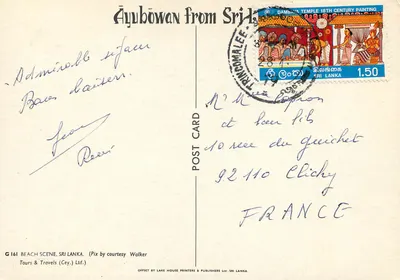 Ayubowan from Sri L
DAMBAVA TEMPLE 18TH CENTURY PAINTING
SRI LANKA 1.50
TRINCOMALEE
Admirable séjour
Bons baisers.
René
M et Mme
et leur fils
10 rue du guichet
92110 Clichy
FRANCE
POST CARD
G 161 BEACH SCENE, SRI LANKA. (Pix by courtesy Walker
Tours & Travels (Cey.) Ltd.)
OFFSET BY LAKE HOUSE PRINTERS & PUBLISHERS Ltd. SRI LANKA.